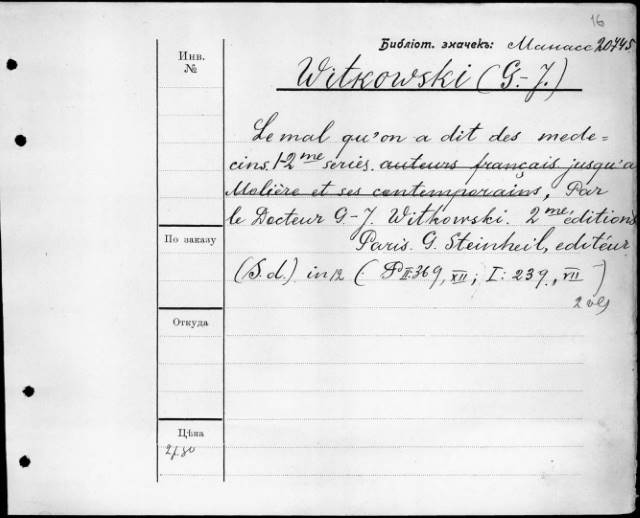 16
Библіот. значекъ: Манасс 20745
Инв.
№
Witkowski (G-J.)
Le mal qu'on a dit des mede=
cins. 1-2me series. auteurs français jusqu'a
Molière et ses contemporains, Par
le Docteur G-J. Witkowski. 2me éditions
По заказу
Paris. G. Steinheil, editéur
(S.d.) in 12 (P II: 369, XII; I: 239, VII)
2 vls
Откуда
Цѣна